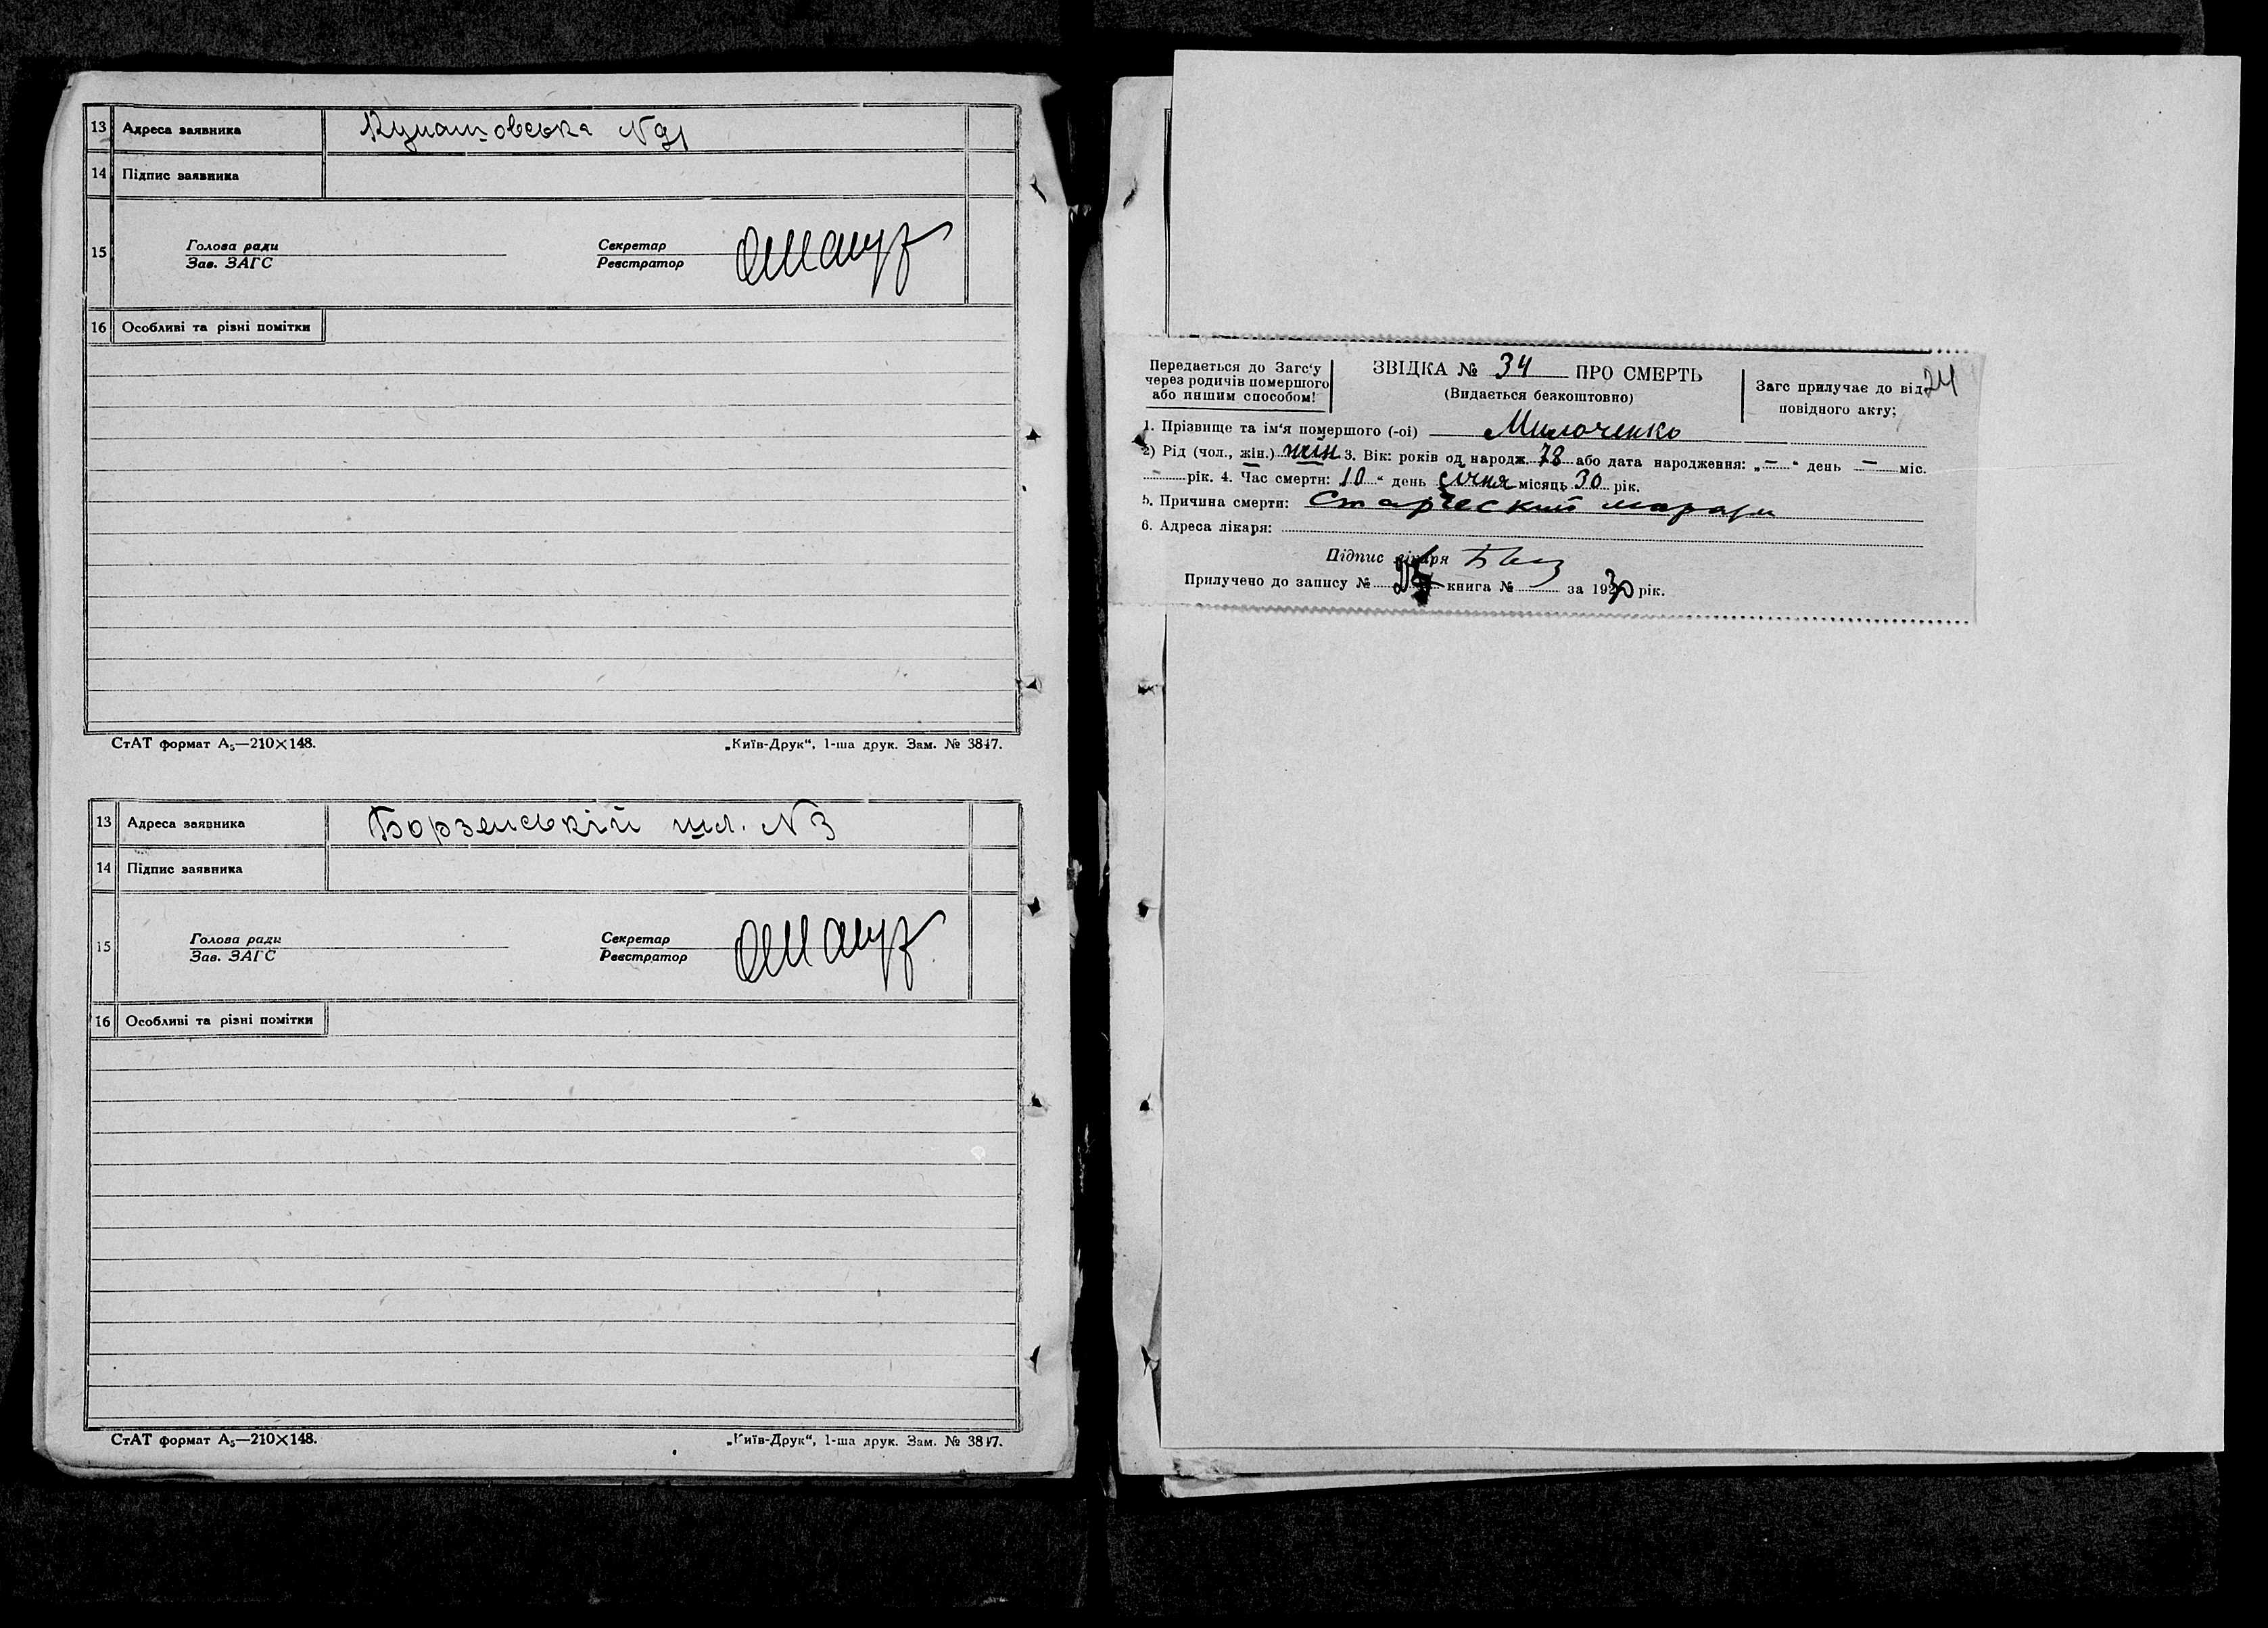 13 Адреса заявника Кунашовська N 91
14 Підпис заявника
15 Голова ради Секретар
Зав. ЗАГС Реєстратор
16 Особливі та різні помітки
СтАТ формат А₅—210×148. „Київ-Друк“, 1-ша друк. Зам. № 3847.
13 Адреса заявника Борзенський шл. N 3
14 Підпис заявника
15 Голова ради Секретар
Зав. ЗАГС Реєстратор
16 Особливі та різні помітки
СтАТ формат А₅—210×148. „Київ-Друк“, 1-ша друк. Зам. № 3847.
Передається до Загс‘у
через родичів помершого
або иншим способом!
ЗВІДКА № 34 ПРО СМЕРТЬ
(Видається безкоштовно)
Загс прилучає до від-
повідного акту;
24
1. Прізвище та ім‘я помершого (-ої) Милоченко
2) Рід (чол., жін.) жін 3. Вік: років од народж. 78 або дата народження: „ – “ день – міс.
– рік. 4. Час смерти: 10 “ день січня місяць 30 рік.
5. Причина смерти: Старческий маразм
6. Адреса лікаря:
Підпис лікаря
Прилучено до запису № книга № за 1930 рік.